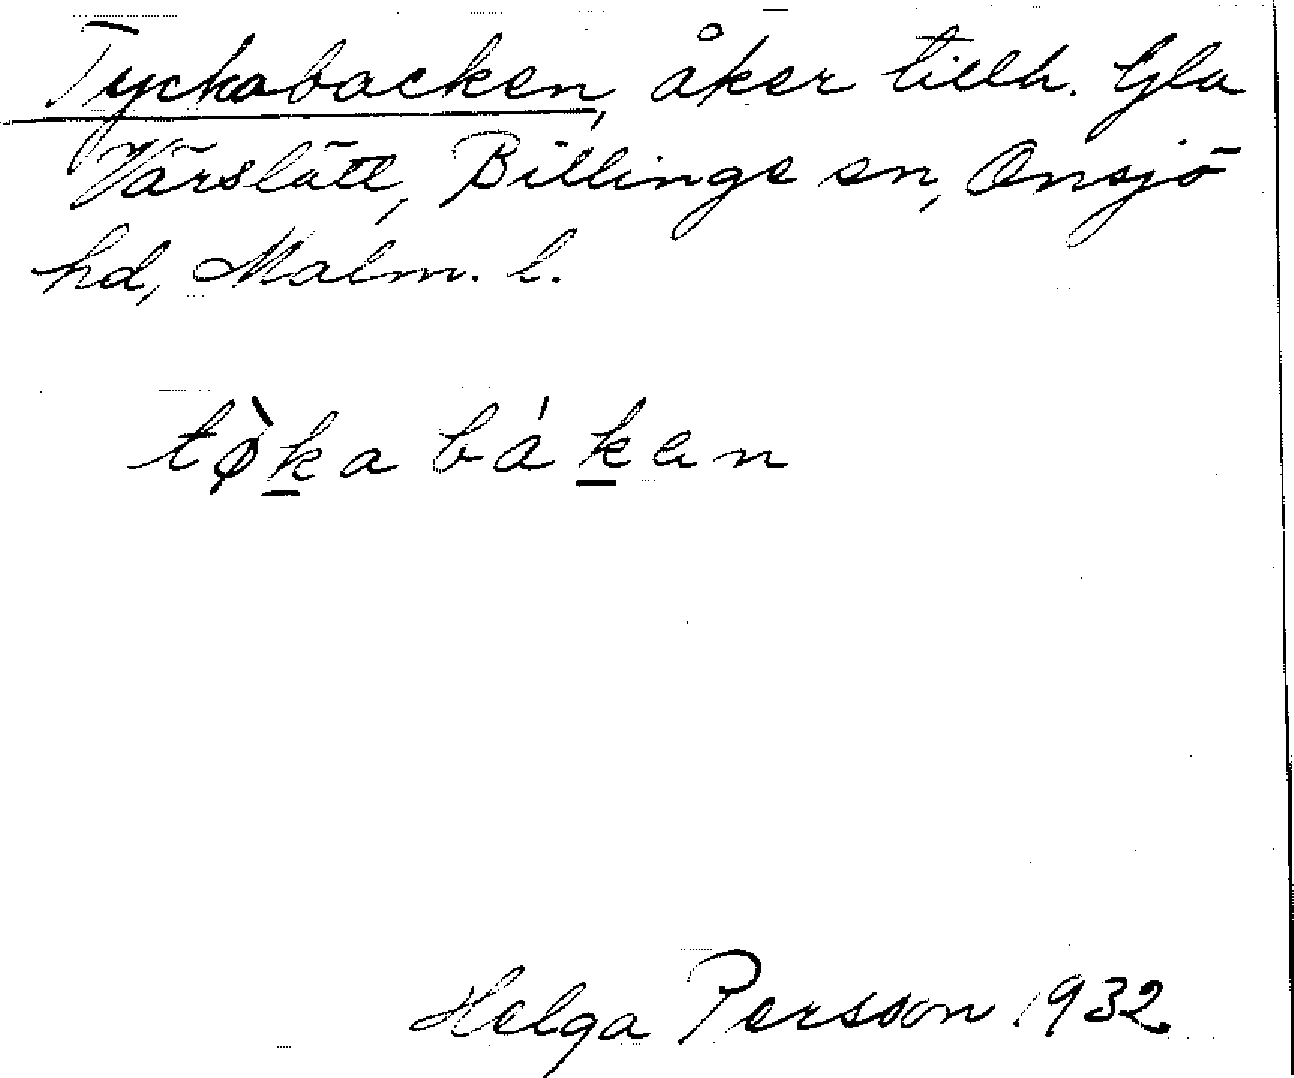 Tyckabacken, åker tillh. Gla
Värslätt, Billinge sn, Onsjö
hd, Malm. l.
tø̀ka bákan
Helga Persson 1932